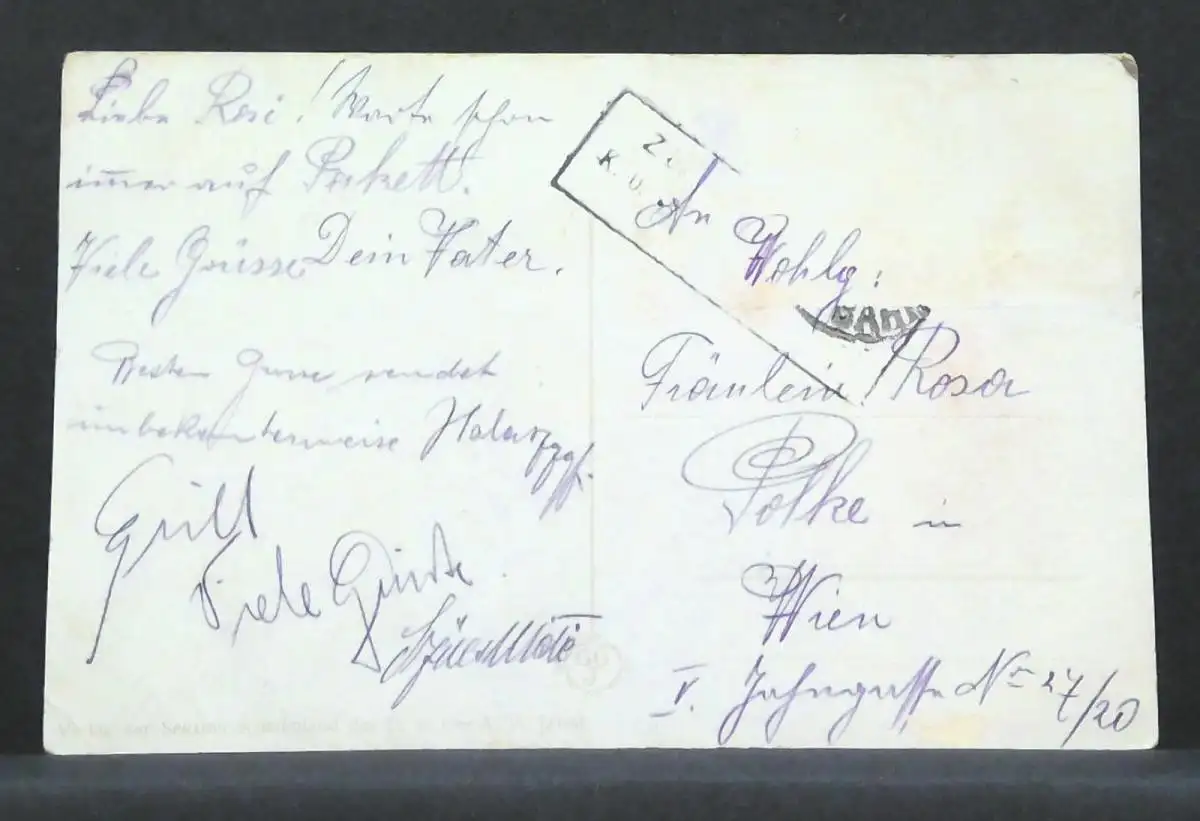 Liebe Rosi! Warte schon
immer auf Packett.
Viele Grüsse Dein Vater.
Besten Gruss sendet
unbekannterweise
Grill
Viele Grüsse
Z
K. u.
An
Wohlg:
Fräulein! Rosa
Polke in
Wien
V. Jahngasse Nr 27/20